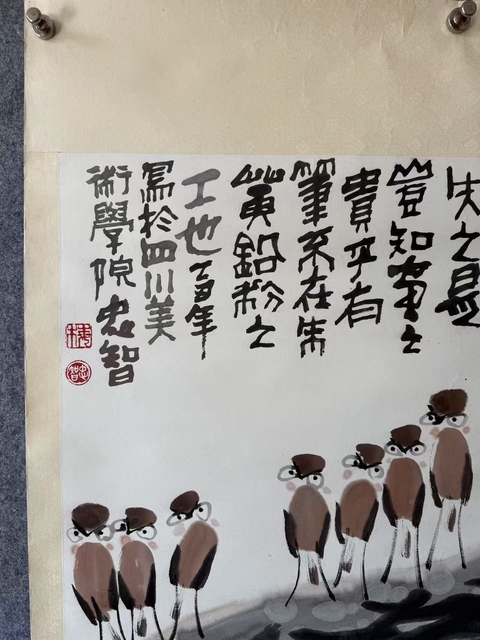 之
豈知畫之
貴乎有
筆不在朱
黄鉛粉之
工也百年
寫於四川美
術學院忠智
忠智